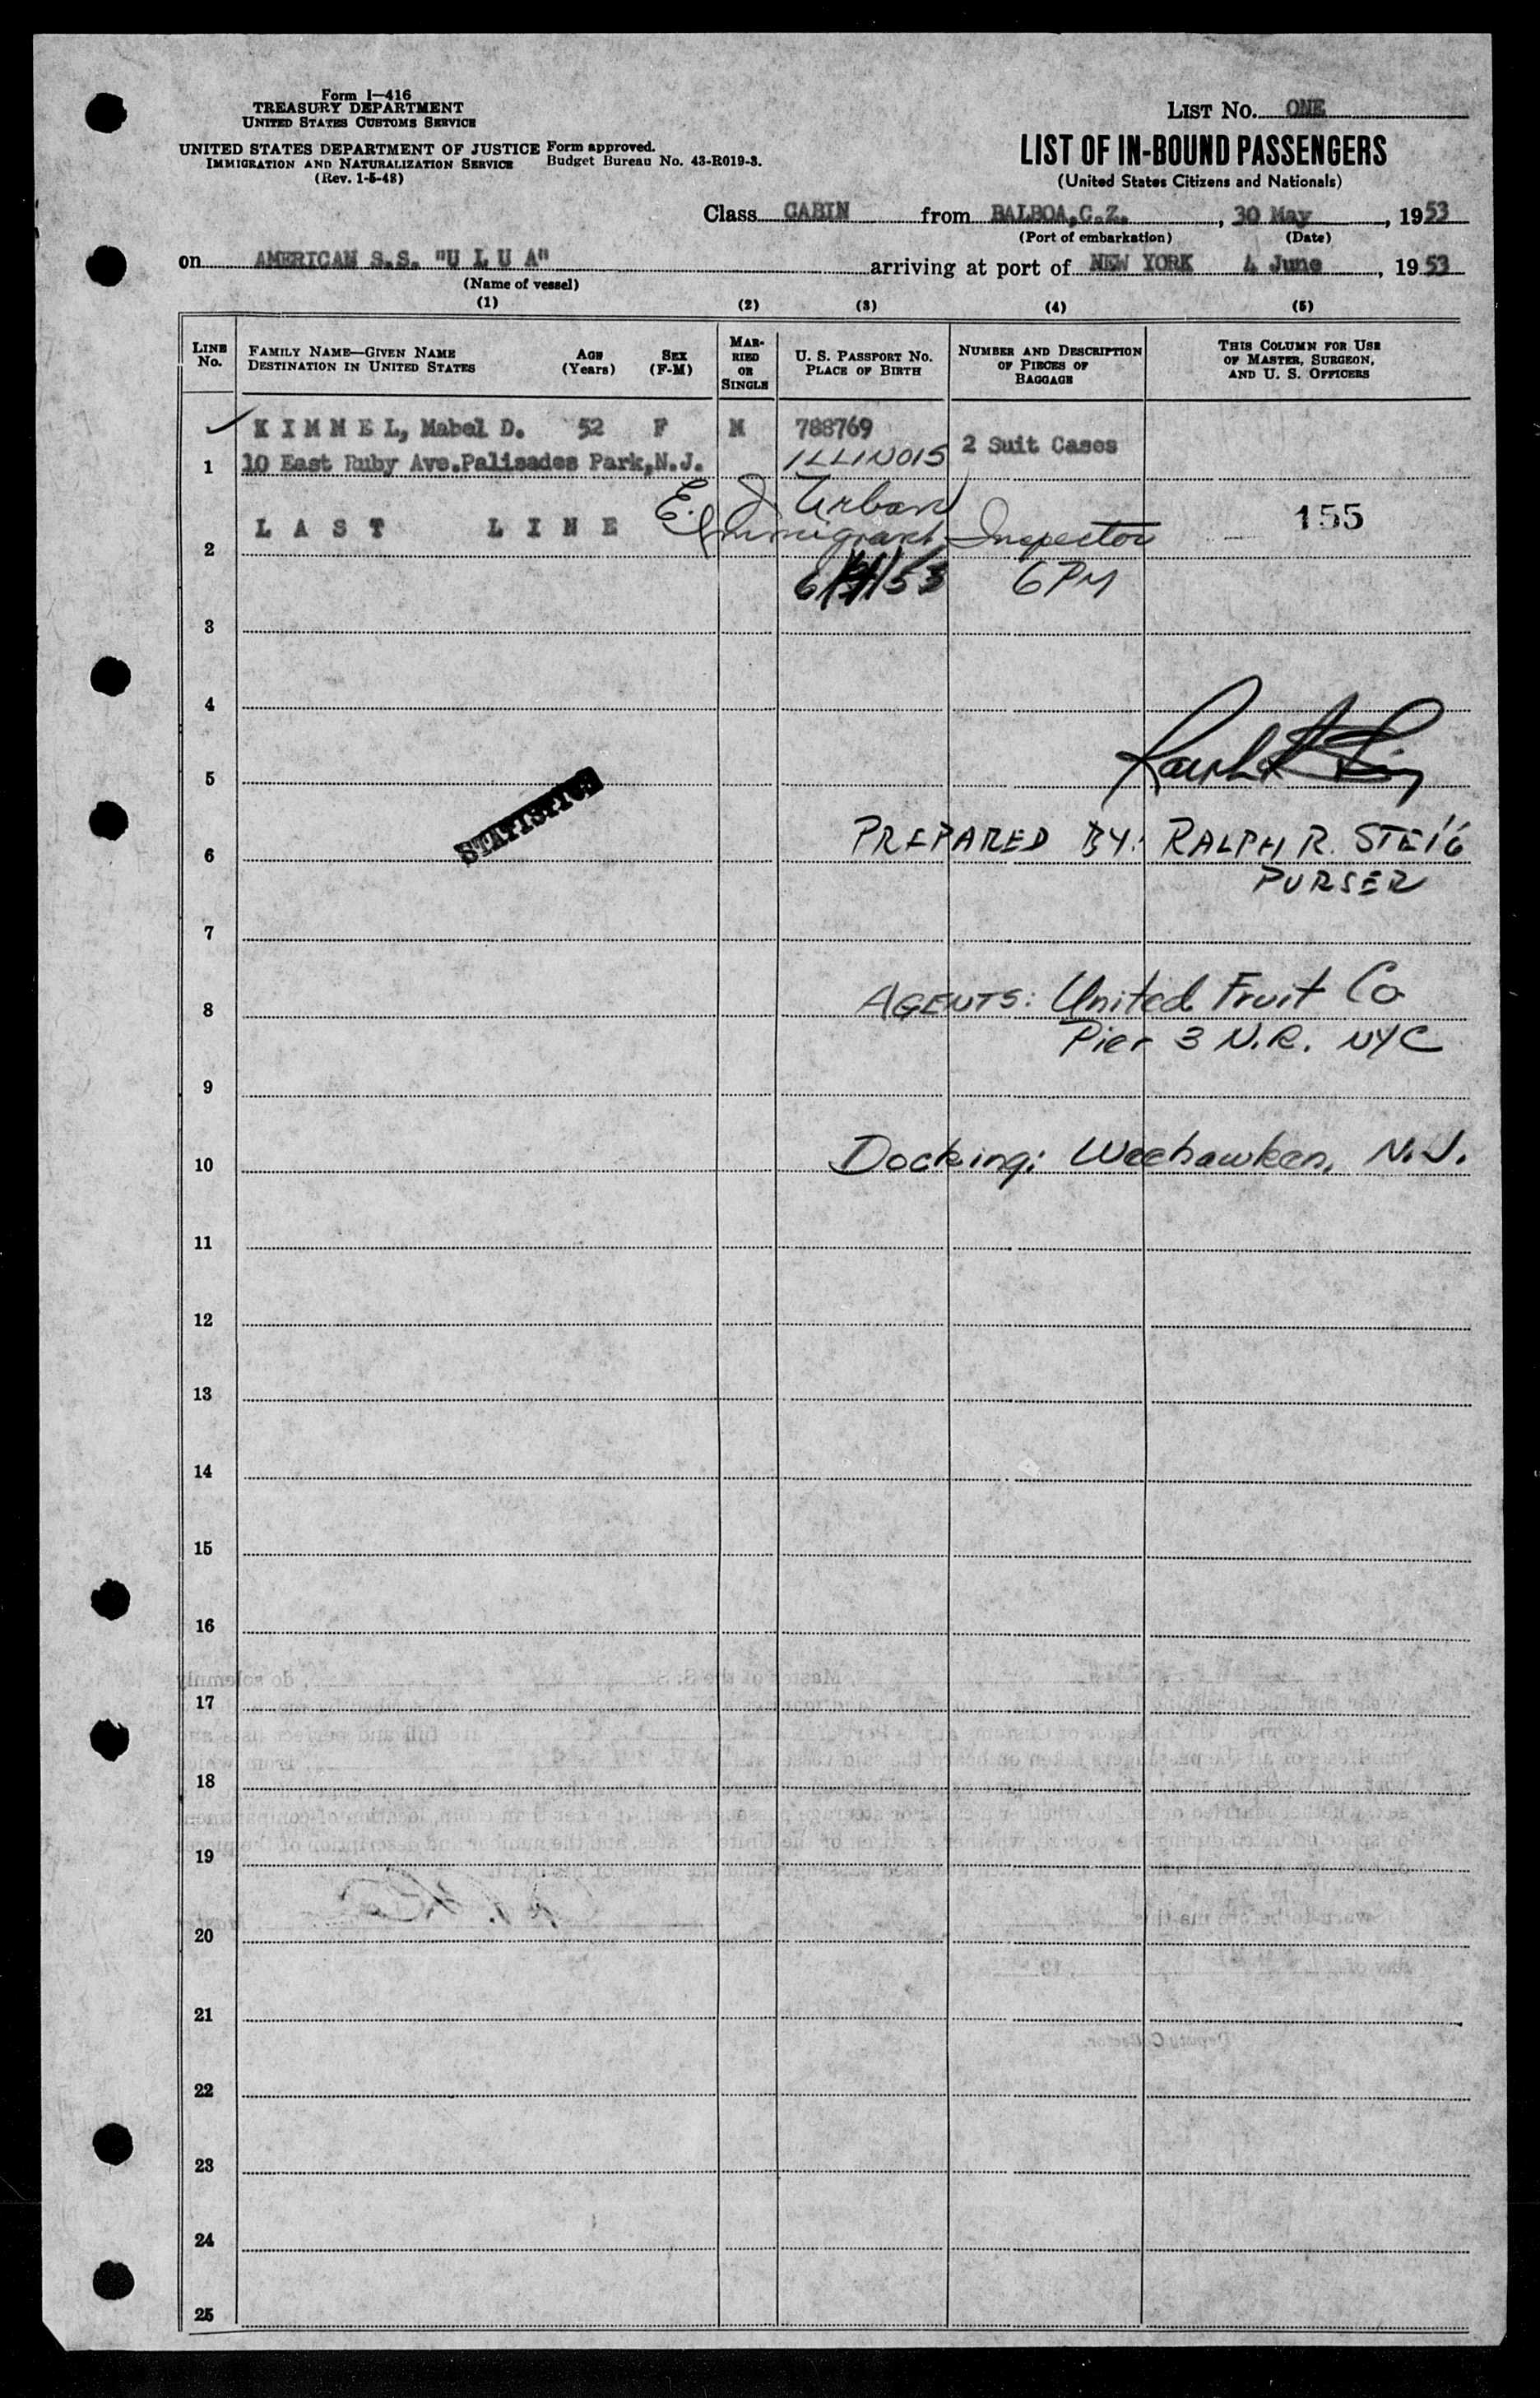 Form I-416
TREASURY DEPARTMENT
UNITED STATES CUSTOMS SERVICE
UNITED STATES DEPARTMENT OF JUSTICE
IMMIGRATION AND NATURALIZATION SERVICE
(Rev. 1-5-48)
Form approved.
Budget Bureau No. 43-R019-3.
LIST No. ONE
LIST OF IN-BOUND PASSENGERS
(United States Citizens and Nationals)
Class CABIN from BALBOA,C.Z. , 30 May , 1953
(Port of embarkation) (Date)
on AMERICAN S.S. "U L U A" arriving at port of NEW YORK 4 June , 1953
(Name of vessel)
(1) (2) (3) (4) (5)
LINE No.
FAMILY NAME—GIVEN NAME
DESTINATION IN UNITED STATES
AGE (Years)
SEX (F-M)
MARRIED OR SINGLE
U. S. PASSPORT No.
PLACE OF BIRTH
NUMBER AND DESCRIPTION OF PIECES OF BAGGAGE
THIS COLUMN FOR USE OF MASTER, SURGEON, AND U. S. OFFICERS
K I M M E L, Mabel D. 52 F M 788769
1 10 East Ruby Ave.Palisades Park,N.J. ILLINOIS 2 Suit Cases
E. J. Urban
2 L A S T L I N E Immigrant Inspector 155
6/4/53 6 PM
3
4
5
STATISTICS
6 PREPARED BY: RALPH R. STEIG
PURSER
7
8 AGENTS: United Fruit Co
Pier 3 N.R. NYC
9
10 Docking: Weehawken, N.J.
11
12
13
14
15
16
17
18
19
20
21
22
23
24
25